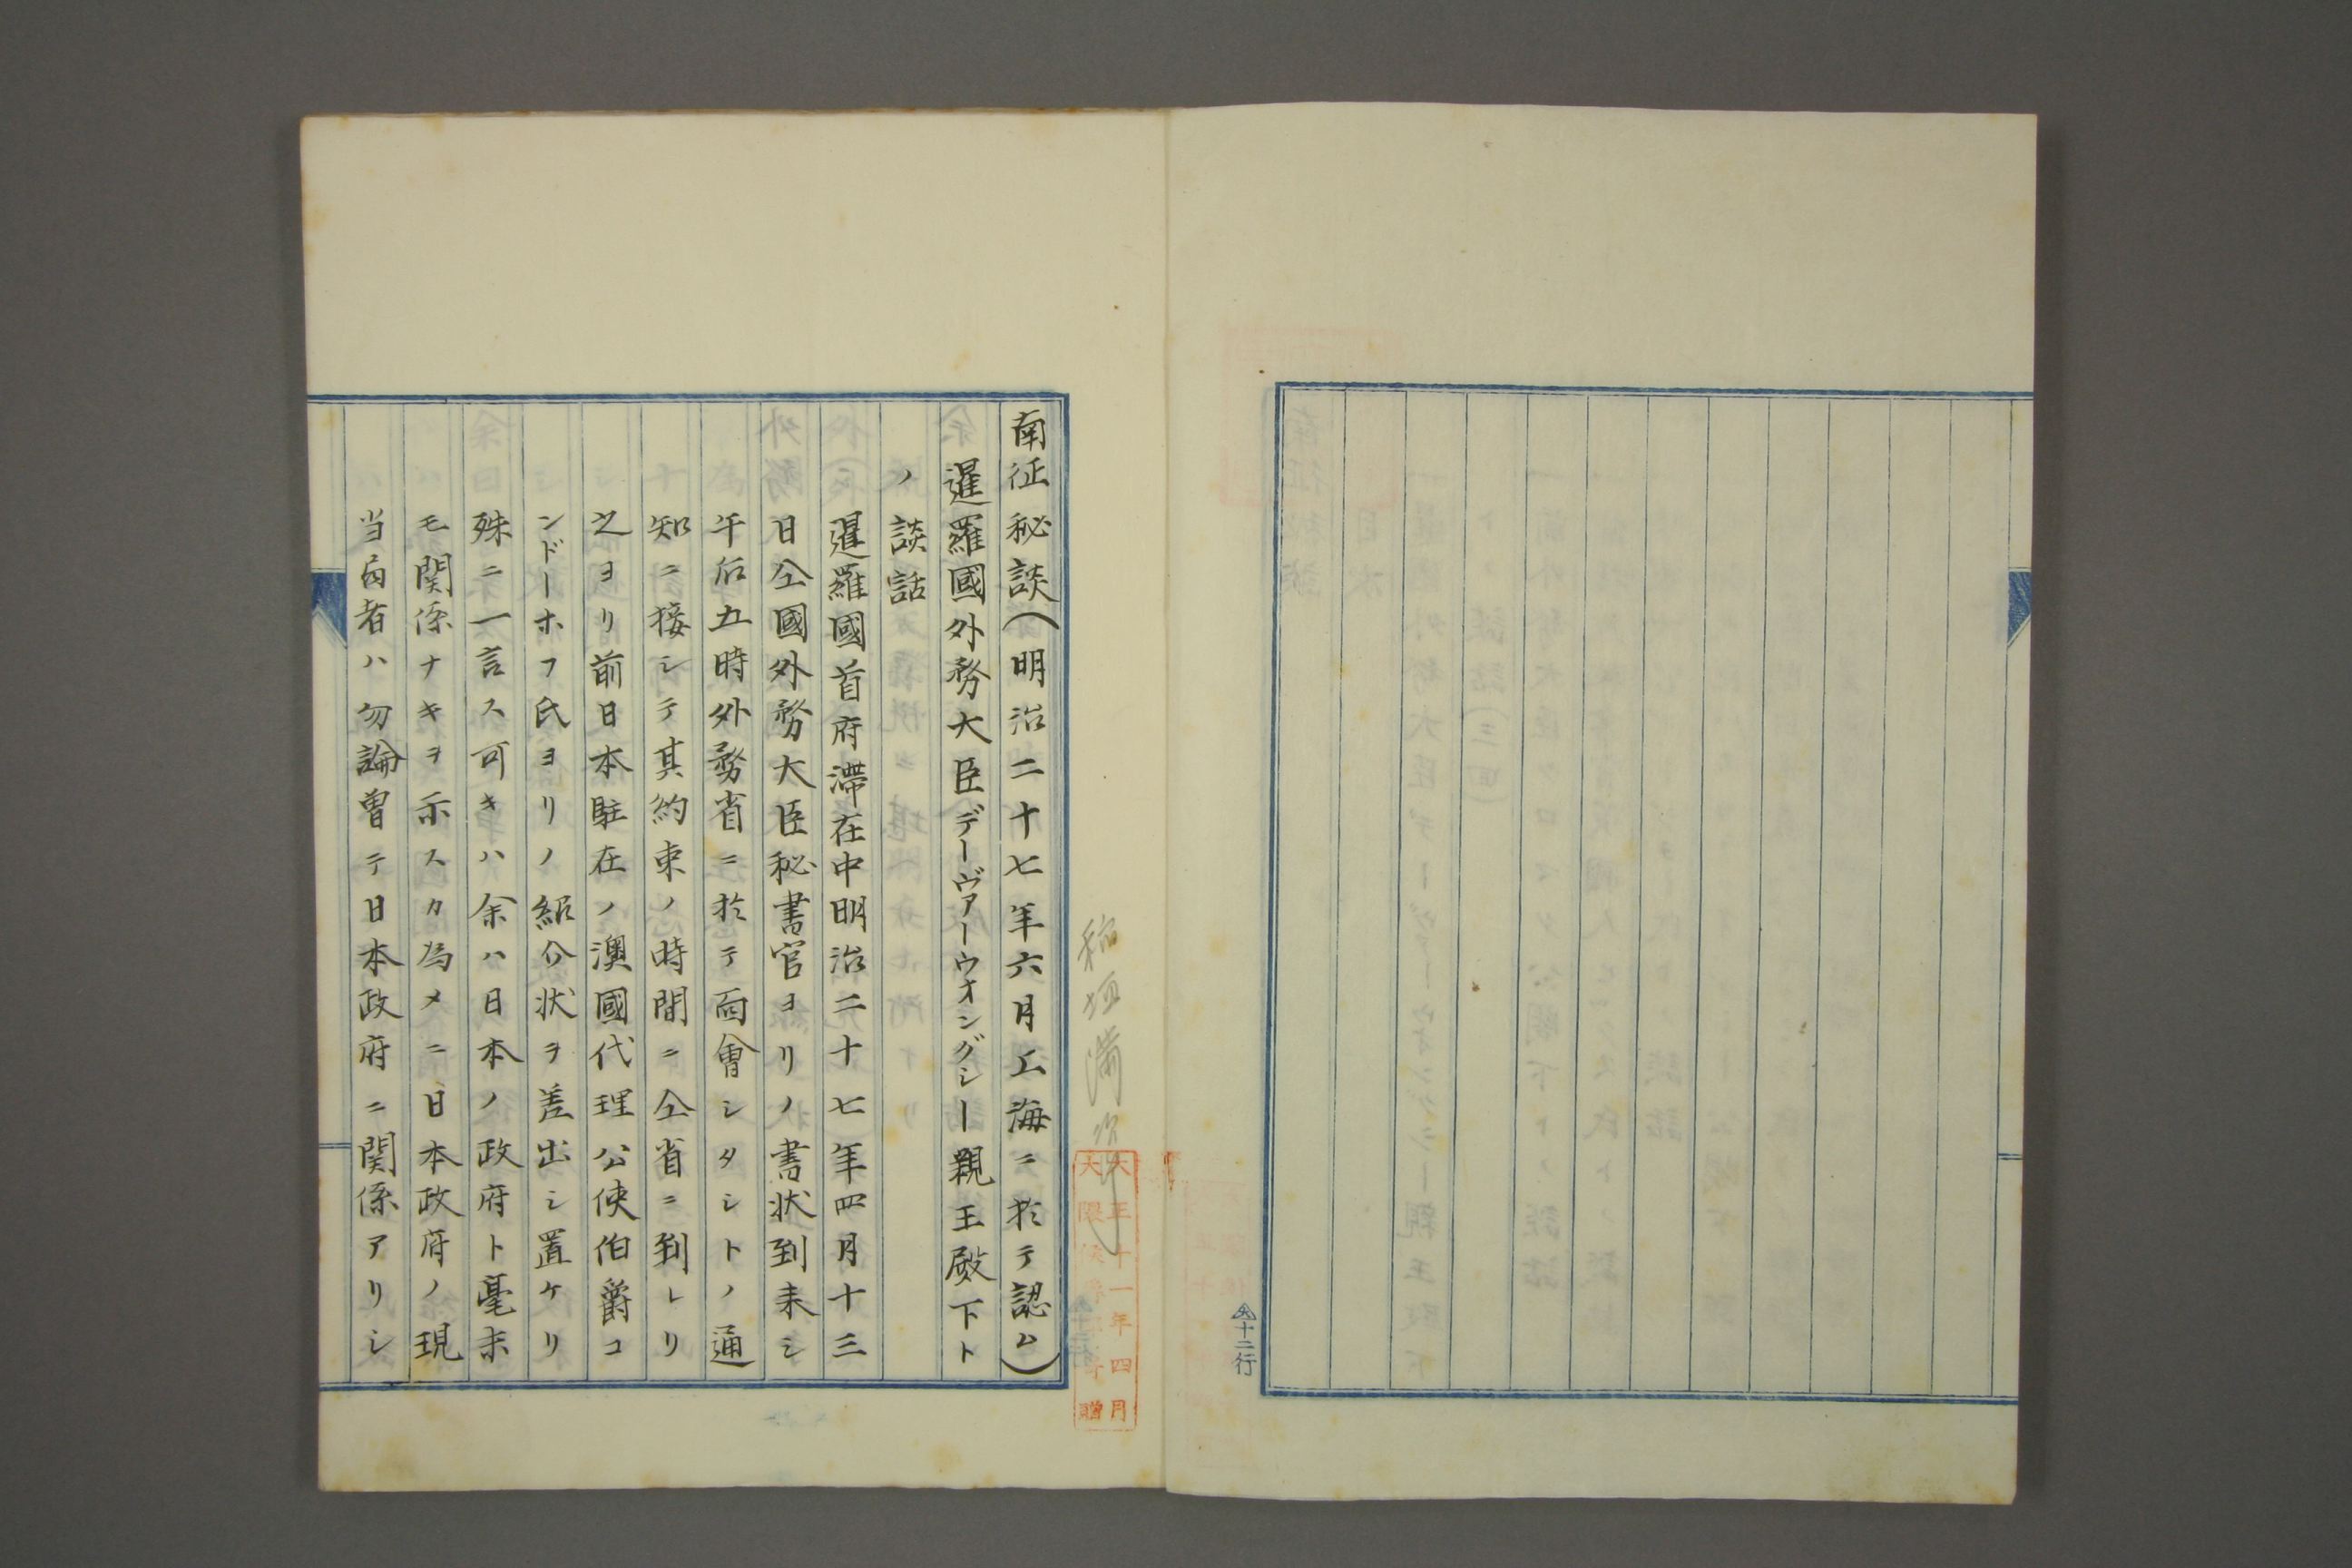 十二行
稲垣満次郎
大正十一年四月
大隈侯爵家寄贈
南征秘談(明治二十七年六月上海ニ於テ認ム)
暹羅國外務大臣デーヴァーウオングシー親王殿下ト
ノ談話
暹羅國首府滞在中明治二十七年四月十三
日仝國外務大臣秘書官ヨリノ書状到来シ
午后五時外務省ニ於テ面會シタシトノ通
知ニ接シテ其約束ノ時間ニ仝省ニ到レリ
之ヨリ前日本駐在ノ澳國代理公使伯爵コ
ンドーホフ氏ヨリノ紹介状ヲ差出シ置ケリ
殊ニ一言ス可キハ余ハ日本ノ政府ト毫末
モ関係ナキヲ示スカ為メニ日本政府ノ現
当局者ハ勿論曽テ日本政府ニ関係アリシ